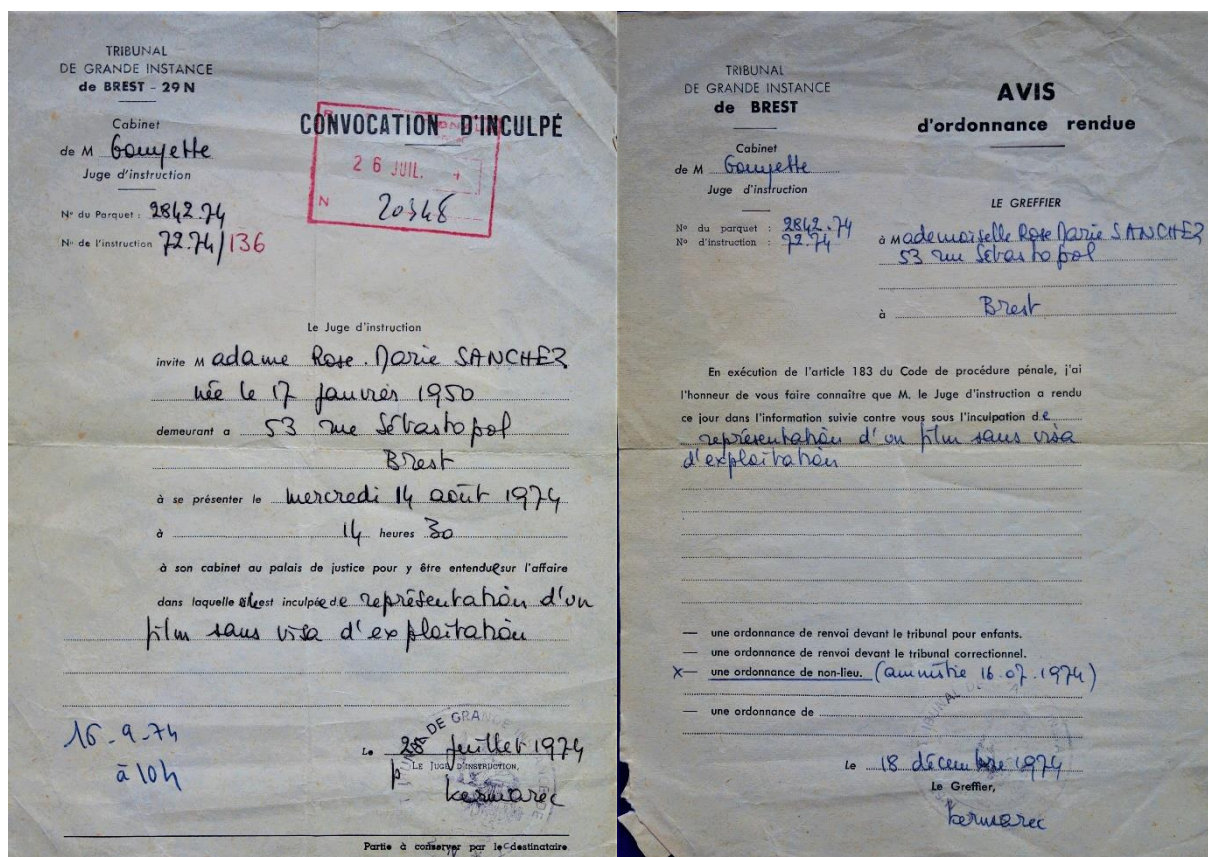 TRIBUNAL
DE GRANDE INSTANCE
de BREST - 29 N
Cabinet
de M Gouyette
Juge d'instruction
N° du Parquet : 2842.74
N° de l'instruction 72.74/136
CONVOCATION D'INCULPÉ
26 JUIL.
N 20348
Le Juge d'instruction
invite M adame Rose.Marie SANCHEZ
née le 17 janvier 1950
demeurant a 53 rue Sébastopol
Brest
à se présenter le mercredi 14 août 1974
à 14 heures 30
à son cabinet au palais de justice pour y être entendue sur l'affaire
dans laquelle elle est inculpée de représentation d'un
film sans visa d'exploitation
16-9-74
à 10h
Le Juillet 1974
P LE JUGE D'INSTRUCTION,
Kermarec
TRIBUNAL DE GRANDE
Partie à conserver par le destinataire
TRIBUNAL
DE GRANDE INSTANCE
de BREST
Cabinet
de M Gouyette
Juge d'instruction
N° du parquet : 2842.74
N° d'instruction : 72.74
AVIS
d'ordonnance rendue
LE GREFFIER
à Mademoiselle Rose Marie SANCHEZ
53 rue Sébastopol
à Brest
En exécution de l'article 183 du Code de procédure pénale, j'ai
l'honneur de vous faire connaître que M. le Juge d'instruction a rendu
ce jour dans l'information suivie contre vous sous l'inculpation de
représentation d'un film sans visa
d'exploitation
— une ordonnance de renvoi devant le tribunal pour enfants.
— une ordonnance de renvoi devant le tribunal correctionnel.
x— une ordonnance de non-lieu. (amnistie 16.07.1974)
— une ordonnance de
Le 18 décembre 1974
Le Greffier,
Kermarec